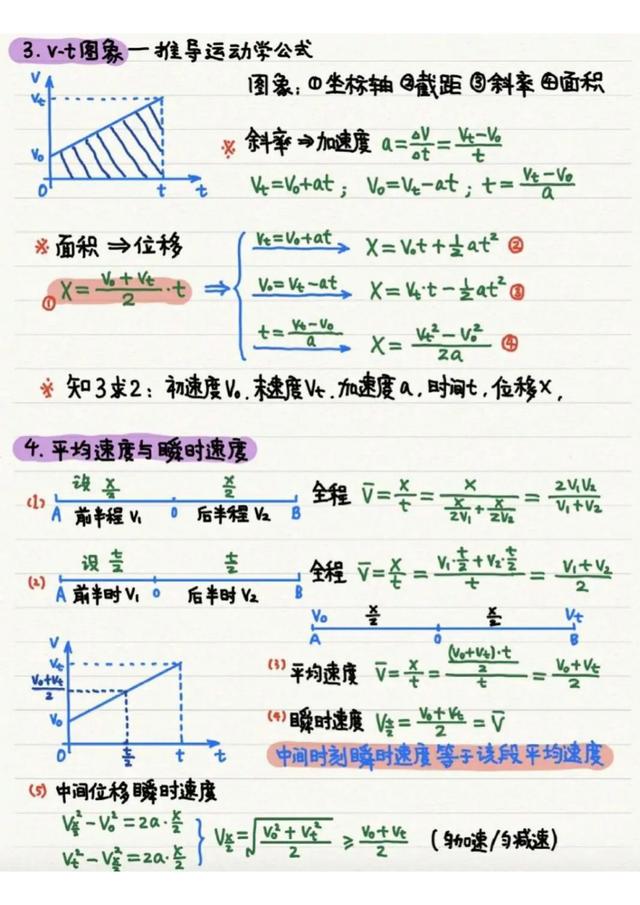 3. v-t图象 — 推导运动学公式
图象: ①坐标轴 ②截距 ③斜率 ④面积
V
Vt
V₀
0 t t
※ 斜率 ⇒ 加速度 a = ΔV/Δt = (Vt-V₀)/t
Vt=V₀+at; V₀=Vt-at; t=(Vt-V₀)/a
※ 面积 ⇒ 位移
① X = (V₀+Vt)/2 · t ⇒
Vt=V₀+at X = V₀t + ½at² ②
V₀=Vt-at X = Vt·t - ½at² ③
t=(Vt-V₀)/a X = (Vt²-V₀²)/2a ④
※ 知3求2: 初速度V₀. 末速度Vt. 加速度a, 时间t, 位移X,
4. 平均速度与瞬时速度
设 x/2 x/2
(1) A 前半程 V₁ 0 后半程 V₂ B
全程 V̄ = x/t = x/(x/2V₁ + x/2V₂) = 2V₁V₂/(V₁+V₂)
设 t/2 t/2
(2) A 前半时 V₁ 0 后半时 V₂ B
全程 V̄ = x/t = (V₁·t/2 + V₂·t/2)/t = (V₁+V₂)/2
V₀ x/2 x/2 Vt
A 0 B
V
Vt
(V₀+Vt)/2
V₀
0 t/2 t t
(3) 平均速度 V̄ = x/t = ((V₀+Vt)·t/2)/t = (V₀+Vt)/2
(4) 瞬时速度 Vt/2 = (V₀+Vt)/2 = V̄
中间时刻瞬时速度等于该段平均速度
(5) 中间位移瞬时速度
Vx/2² - V₀² = 2a·x/2
Vt² - Vx/2² = 2a·x/2
Vx/2 = √((V₀²+Vt²)/2) ≥ (V₀+Vt)/2 (匀加速/匀减速)